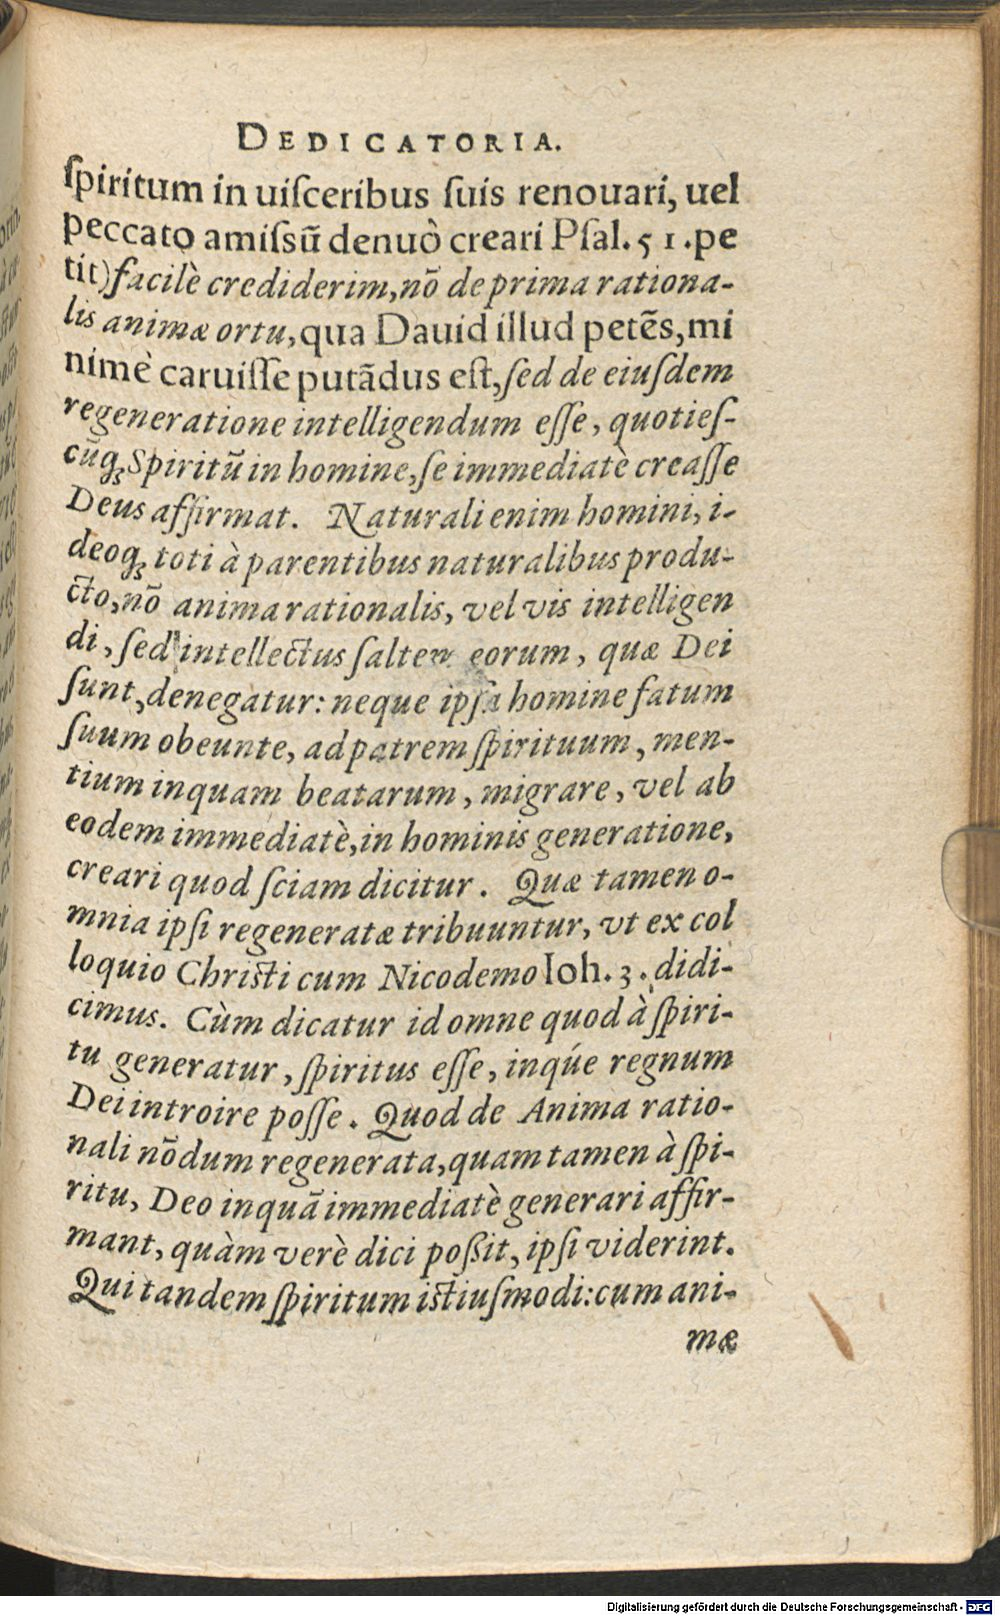 DEDICATORIA.
ſpiritum in uiſceribus ſuis renouari, uel
peccato amiſsũ denuò creari Pſal. 51. pe
tit) facilè crediderim, nõ de prima rationa-
lis animæ ortu, qua Dauid illud petẽs, mi
nimè caruiſſe putãdus eſt, ſed de eiuſdem
regeneratione intelligendum eſſe, quotieſ-
cũqꝫ Spiritũ in homine, ſe immediatè creaſſe
Deus affirmat. Naturali enim homini, i-
deoqꝫ toti à parentibus naturalibus produ-
cto, nõ anima rationalis, vel vis intelligen
di, ſed intellectus ſaltem eorum, quæ Dei
ſunt, denegatur: neque ipſa homine fatum
ſuum obeunte, ad patrem ſpirituum, men-
tium inquam beatarum, migrare, vel ab
eodem immediatè, in hominis generatione,
creari quod ſciam dicitur. Quæ tamen o-
mnia ipſi regeneratæ tribuuntur, vt ex col
loquio Chriſti cum Nicodemo Ioh. 3. didi-
cimus. Cùm dicatur id omne quod à ſpiri-
tu generatur, ſpiritus eſſe, inqúe regnum
Dei introire poſſe. Quod de Anima ratio-
nali nõdum regenerata, quam tamen à ſpi-
ritu, Deo inquã immediatè generari affir-
mant, quàm verè dici poßit, ipſi viderint.
Qui tandem ſpiritum iſtiuſmodi: cum ani-
mæ
Digitalisierung gefördert durch die Deutsche Forschungsgemeinschaft - DFG